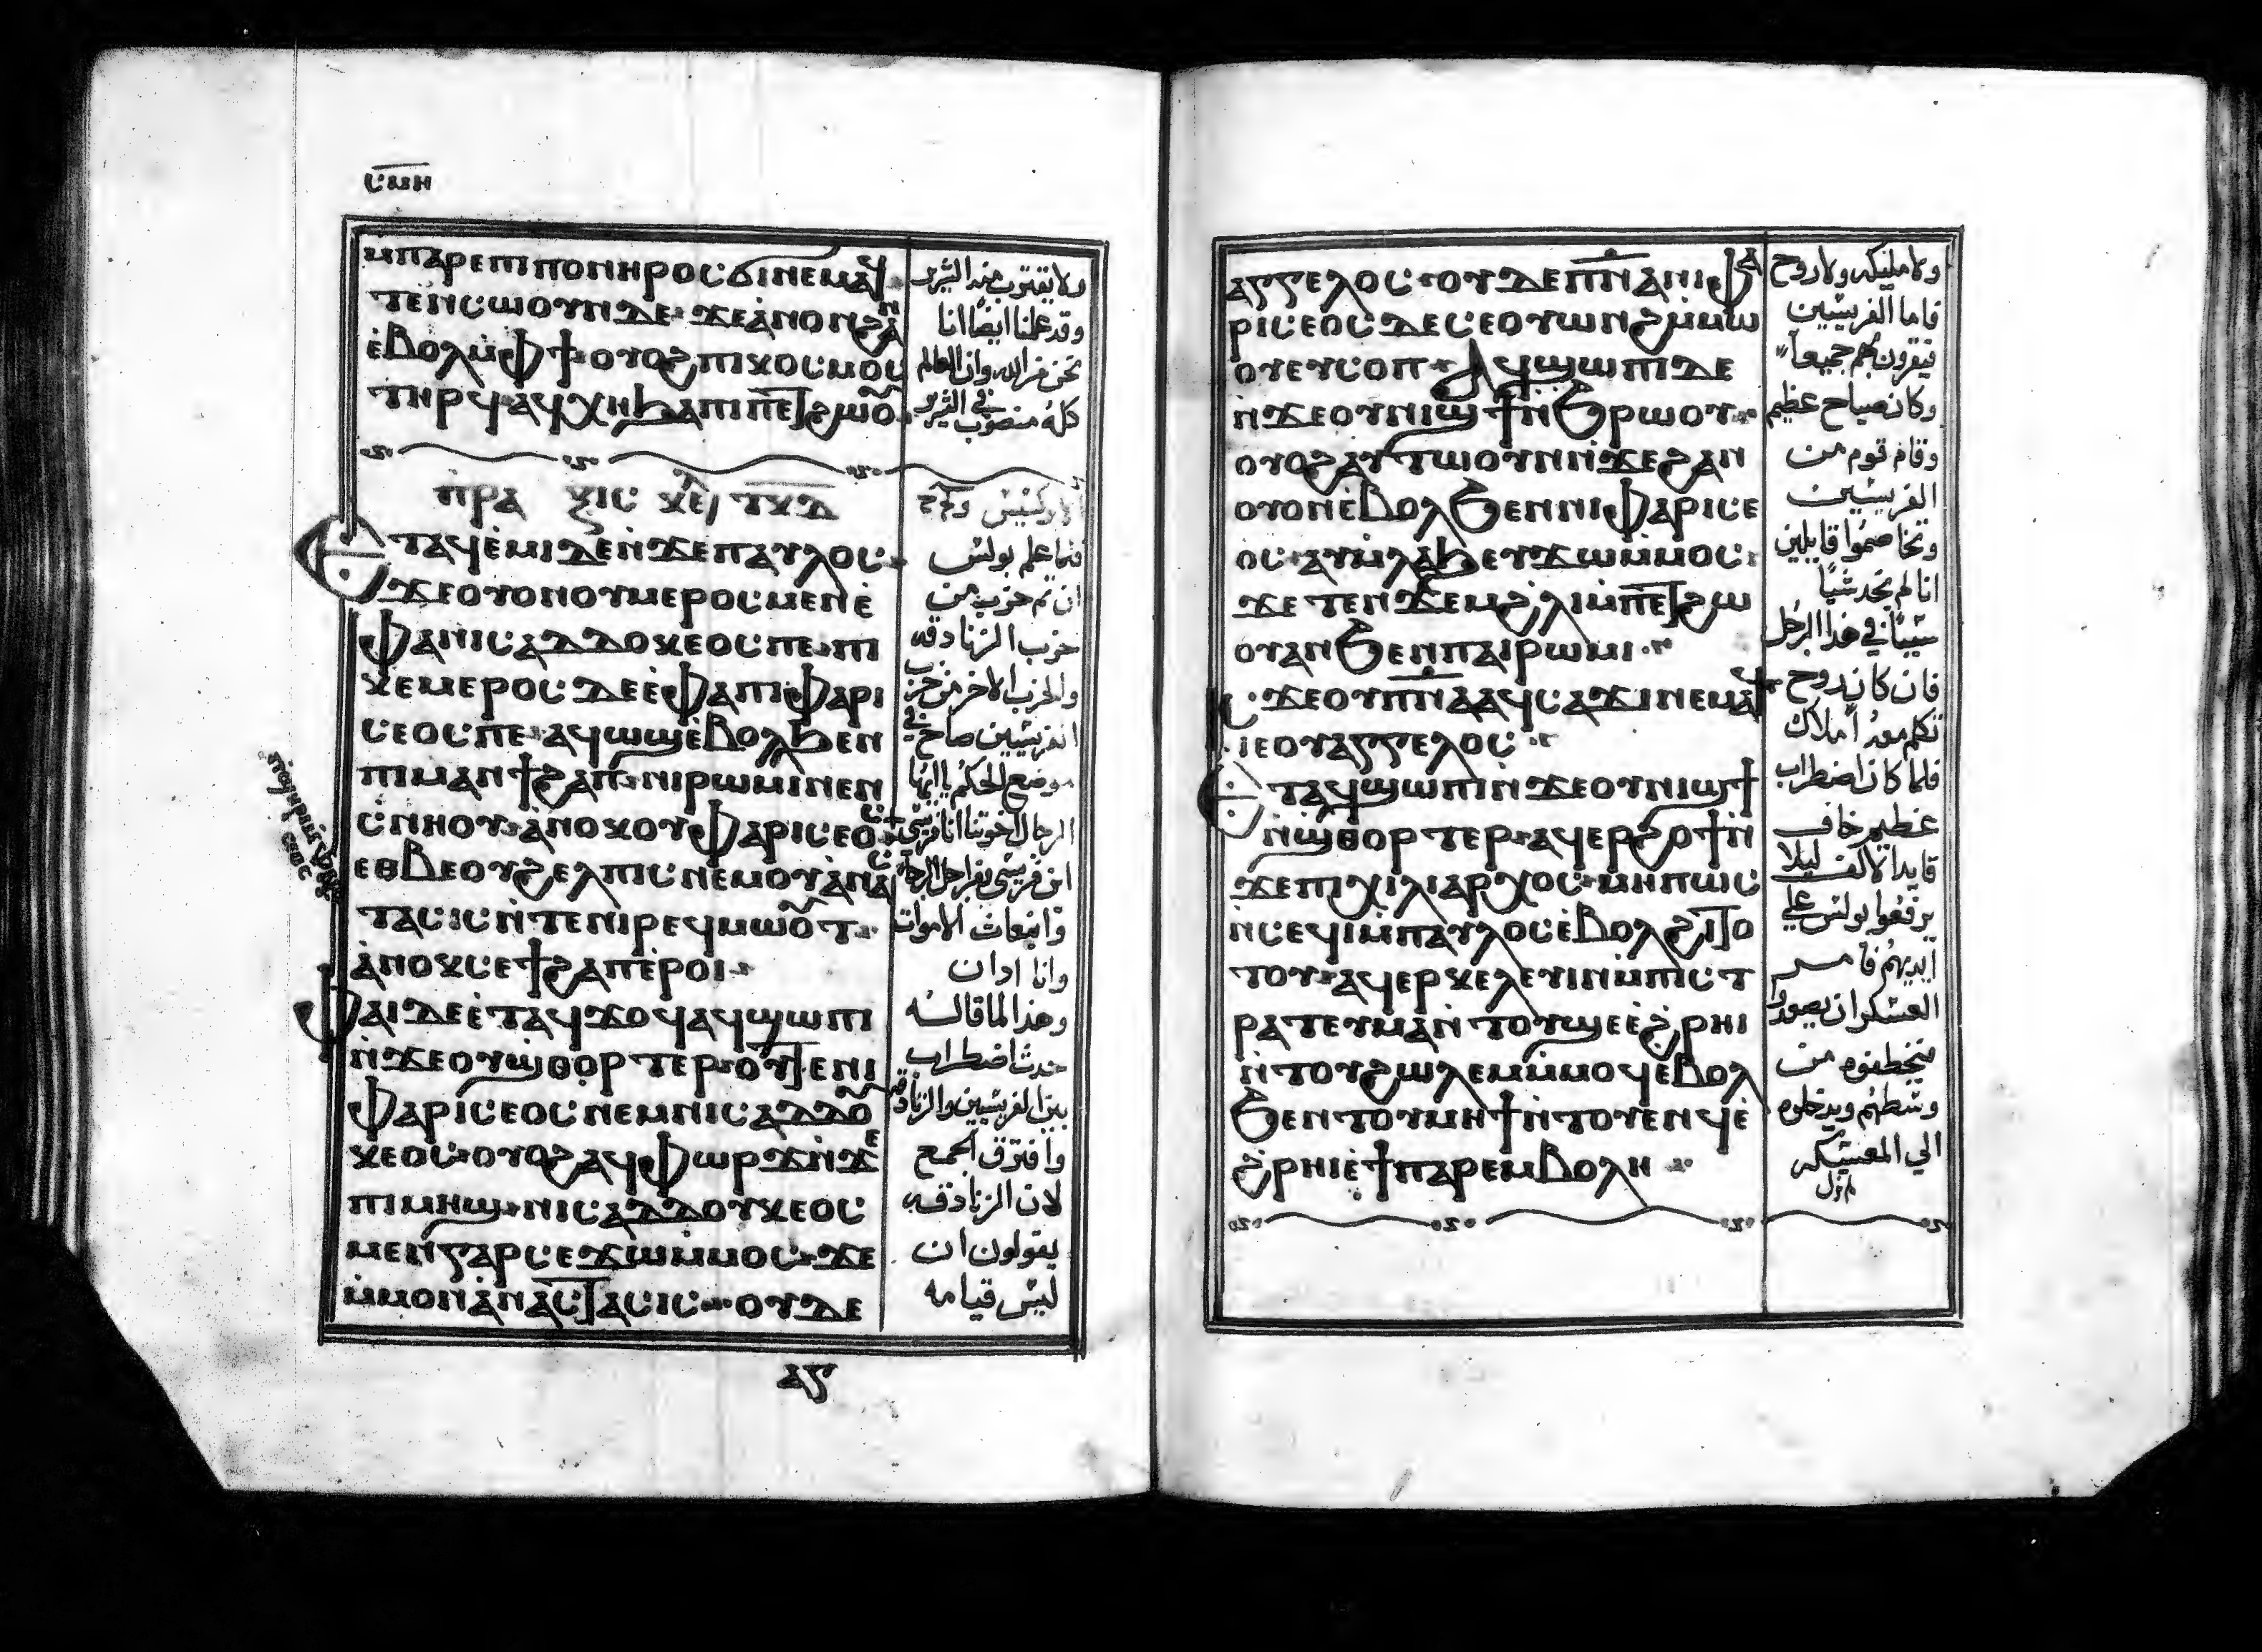 ⲥ̅ⲙ̅ⲏ̅
ⲙ̀ⲡⲁⲣⲉⲡⲓⲡⲟⲛⲏⲣⲟⲥ ϭⲓⲛⲉⲙⲁϥ
ⲧⲉⲛⲥⲱⲟⲩⲛ ⲇⲉ ϫⲉ ⲁ̀ⲛⲟⲛ ϩⲁⲛ
ⲉ̀ⲃⲟⲗ ⲙ̀ⲫϯ ⲟⲩⲟϩ ⲡⲓⲕⲟⲥⲙⲟⲥ
ⲧⲏⲣϥ ⲁϥⲭⲏ ϧⲁ ⲡⲓⲡⲉⲧϩⲱⲟⲩ
ⲡⲣⲁⲝⲓⲥ ⲕⲉ ⲧⲕⲇ
ⲉⲧⲁϥⲉ̀ⲙⲓ ⲇⲉ ⲛ̀ϫⲉ ⲡⲁⲩⲗⲟⲥ
ϫⲉ ⲟⲩⲟⲛ ⲟⲩⲙⲉⲣⲟⲥ ⲙⲉⲛ ⲉ̀
ⲫⲁ ⲛⲓⲥⲁⲇⲇⲟⲕⲉⲟⲥ ⲡⲉ ⲡⲓ
ⲕⲉⲙⲉⲣⲟⲥ ⲇⲉ ⲉ̀ⲫⲁ ⲡⲓⲫⲁⲣⲓ
ⲥⲉⲟⲥ ⲡⲉ ⲁϥⲱϣ ⲉ̀ⲃⲟⲗ ϧⲉⲛ
ⲡⲓⲙⲁⲛϯϩⲁⲡ ⲛⲓⲣⲱⲙⲓ ⲛⲉⲛ
ⲥⲛⲏⲟⲩ ⲁⲛⲟⲕ ⲟⲩⲫⲁⲣⲓⲥⲉⲟⲥ
ⲉⲑⲃⲉ ⲟⲩϩⲉⲗⲡⲓⲥ ⲛⲉⲙ ⲟⲩⲁ̀ⲛⲁⲥ
ⲧⲁⲥⲓⲥ ⲛ̀ⲧⲉ ⲛⲓⲣⲉϥⲙⲱⲟⲩⲧ
ⲁ̀ⲛⲟⲕ ⲥⲉϯϩⲁⲡ ⲉ̀ⲣⲟⲓ
ⲫⲁⲓ ⲇⲉ ⲉ̀ⲧⲁϥϫⲟϥ ⲁϥϣⲱⲡⲓ
ⲛ̀ϫⲉ ⲟⲩϣⲑⲟⲣⲧⲉⲣ ⲟⲩⲧⲉ ⲛⲓ
ⲫⲁⲣⲓⲥⲉⲟⲥ ⲛⲉⲙ ⲛⲓⲥⲁⲇⲇⲟⲩ
ⲕⲉⲟⲥ ⲟⲩⲟϩ ⲁϥⲫⲱⲣϫ ⲛ̀ϫⲉ
ⲡⲓⲙⲏϣ ⲛⲓⲥⲁⲇⲇⲟⲩⲕⲉⲟⲥ
ⲙⲉⲛ ⲅⲁⲣ ⲥⲉϫⲱ ⲙ̀ⲙⲟⲥ ϫⲉ
ⲙ̀ⲙⲟⲛ ⲁ̀ⲛⲁⲥⲧⲁⲥⲓⲥ ⲟⲩⲇⲉ
ⲁⲅ
ولا يقترب منه الشرير
وقد علمنا ايضا اننا
نحن من الله وان العالم
كله منصوب في الشرير
فلما علم بولس
ان ثم حزب من
حزب الزنادقه
والحزب الاخر من حزب
الفريسيين صاح في
موضع الحكم يا ايها
الرجال اخوتنا انا فريسي
ابن فريسي من اجل الرجاء
وانبعاث الاموات
وانا ادان
وهذا لما قاله
حدث اضطراب
بين الفريسيين والزنادقه
وافترق الجمع
لان الزنادقه
يقولون ان
ليس قيامه
ⲁⲅⲅⲉⲗⲟⲥ ⲟⲩⲇⲉ ⲡⲛⲁ ⲛⲓⲫⲁ
ⲣⲓⲥⲉⲟⲥ ⲇⲉ ⲥⲉⲟⲩⲱⲛϩ ⲙ̀ⲙⲱ
ⲟⲩ ⲉⲩⲥⲟⲡ ⲁϥϣⲱⲡⲓ ⲇⲉ
ⲛ̀ϫⲉ ⲟⲩⲛⲓϣϯ ⲛ̀ϧⲣⲱⲟⲩ
ⲟⲩⲟϩ ⲁⲩⲧⲱⲟⲩⲛⲟⲩ ⲛ̀ϫⲉ ϩⲁⲛ
ⲟⲩⲟⲛ ⲉ̀ⲃⲟⲗ ϧⲉⲛ ⲛⲓⲫⲁⲣⲓⲥⲉ
ⲟⲥ ⲁⲩⲙ̀ⲗⲁϧ ⲉⲩϫⲱ ⲙ̀ⲙⲟⲥ
ϫⲉ ⲧⲉⲛϫⲉⲙ ϩ̀ⲗⲓ ⲙ̀ⲡⲉⲧϩⲱ
ⲟⲩ ⲁⲛ ϧⲉⲛ ⲡⲁⲓⲣⲱⲙⲓ
ⲓⲥϫⲉ ⲟⲩⲡⲛⲁ ⲁϥⲥⲁϫⲓ ⲛⲉⲙⲁϥ
ⲓⲉ ⲟⲩⲁⲅⲅⲉⲗⲟⲥ
ⲉⲧⲁϥϣⲱⲡⲓ ⲛ̀ϫⲉ ⲟⲩⲛⲓϣϯ
ⲛ̀ϣⲑⲟⲣⲧⲉⲣ ⲁϥⲉⲣϩⲟϯ ⲛ̀
ϫⲉ ⲡⲓⲭⲓⲗⲓⲁⲣⲭⲟⲥ ⲙⲏⲡⲱⲥ
ⲛ̀ⲥⲉϥⲓ ⲙ̀ⲡⲁⲩⲗⲟⲥ ⲉ̀ⲃⲟⲗ ϩⲓⲧⲟ
ⲧⲟⲩ ⲁϥⲉⲣⲕⲉⲗⲉⲩⲓⲛ ⲙ̀ⲡⲓⲥⲧ
ⲣⲁⲧⲉⲩⲙⲁ ⲛ̀ⲧⲟⲩϣⲉ ⲉ̀ϩ̀ⲣⲏⲓ
ⲛ̀ⲧⲟⲩϩⲱⲗⲉⲙ ⲙ̀ⲙⲟϥ ⲉ̀ⲃⲟⲗ
ϧⲉⲛ ⲧⲟⲩⲙⲏϯ ⲛ̀ⲧⲟⲩⲉⲛϥ ⲉ̀
ϩ̀ⲣⲏⲓ ⲉ̀ϯⲡⲁⲣⲉⲙⲃⲟⲗⲏ
ولا مليكه ولا روح
فاما الفريسيين
فيقرون بهم جميعا
وكان صياح عظيم
وقام قوم من
الفريسيين
وتخاصموا قايلين
انا لم نجد شيا
شيئا في هذا الرجل
فان كان روح
تكلم معه او ملاك
فلما كان اضطراب
عظيم خاف
قايد الالف ليلا
يرفعوا بولس علي
ايديهم فامر
العسكر ان يصيروا
فيخطفوه من
وسطهم ويدخلوه
الي المعسكر